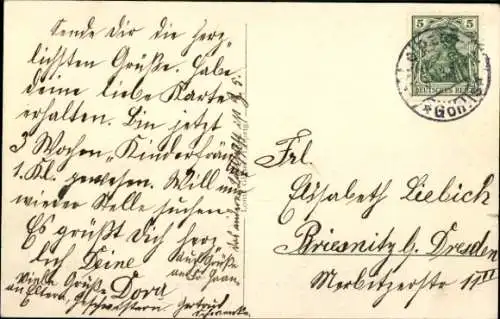 Sende Dir die herz-
lichsten Grüße. Habe
deine liebe Karte
erhalten. Bin jetzt
3 Wochen "Kinderfräu
1. Kl. gewesen. Will nun
wieder Stelle suchen.
Es grüßt Dich herz-
lich Deine
Dora
Viele Grüße
an Eltern, Geschwistern
Auch Grüße
Gertrud
5
5
DEUTSCHES REICH
Frl.
Elisabeth Liebich
Briesnitz b. Dresden
Merbitzerstr 11 III